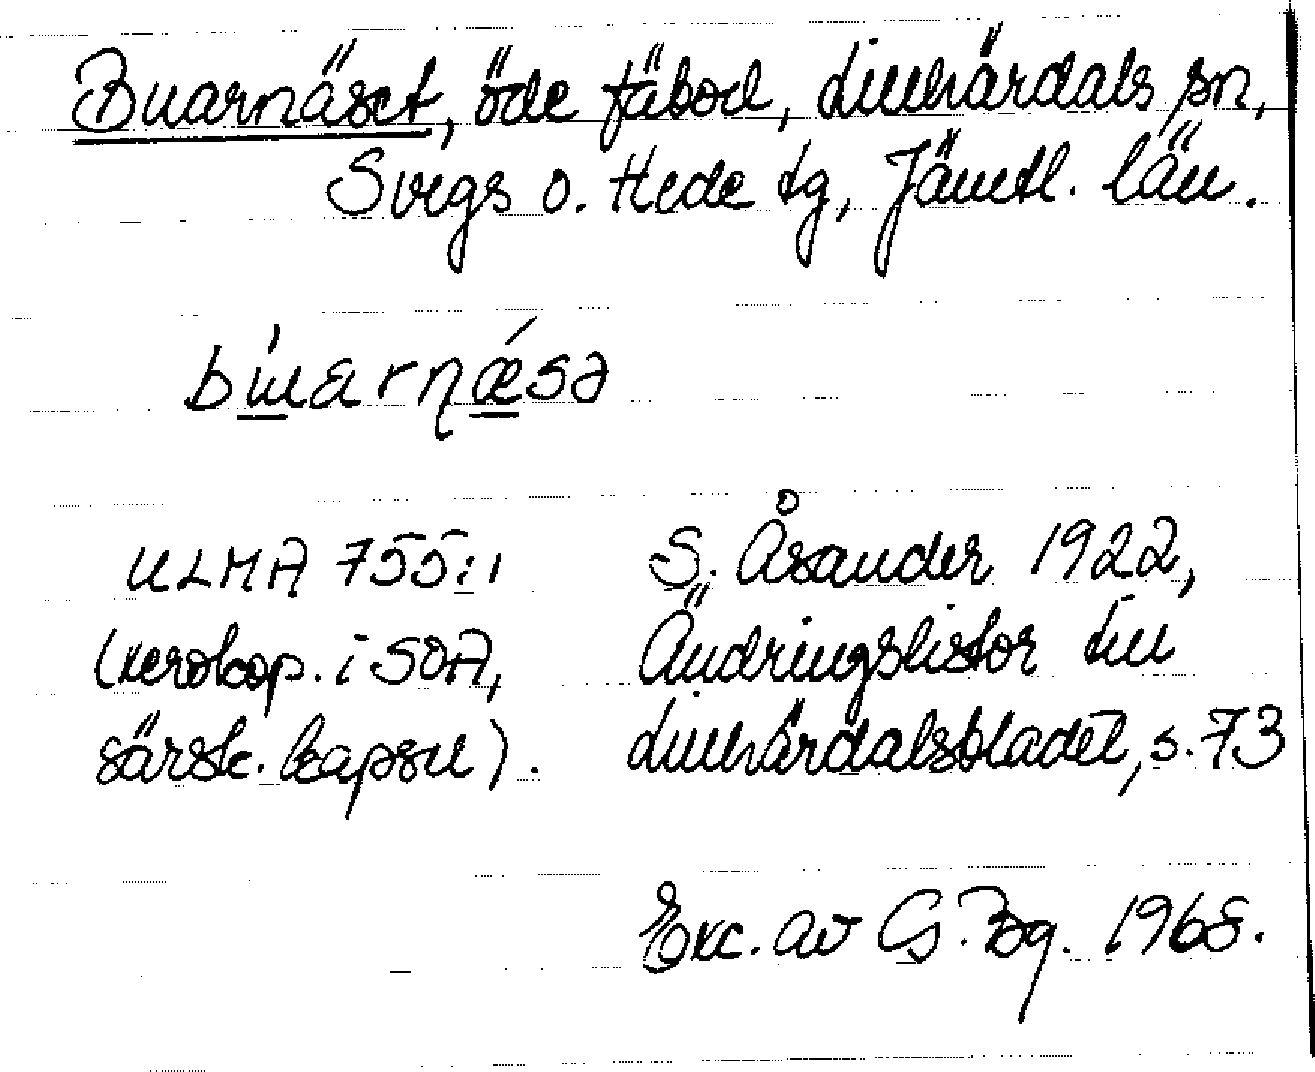 Buarnäset, öde fäbod, Lillhärdals sn,
Svegs o. Hede tg, Jämtl. län.
ULMA 755:1
(xerokop. i SOA,
särsk. kapsel).
S. Åsander 1922,
Ändringslistor till
Lillhärdalsbladet, s. 73
Exc. av G. Bg. 1968.